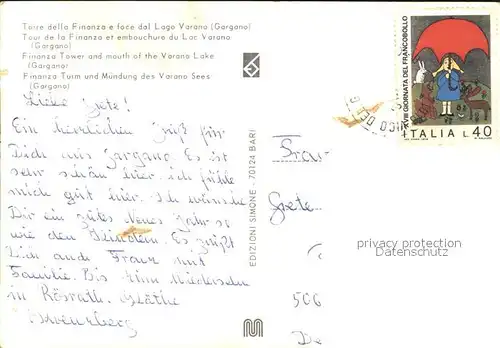 Torre della Finanza e foce dal Lago Varano (Gargano)
Tour de la Finanza et embouchure du Lac Varano
(Gargano)
Finanza Tower and mouth of the Varano Lake
(Gargano)
Finanza Turm und Mündung des Varano Sees
(Gargano)
Liebe Grete!
Ein herzlichen Gruß für
Dich aus Gargano. Es ist
sehr schön hier, ich fühle
mich gut hier. Ich wünsche
Dir ein gutes Neues Jahr so
wie den Kindern. Es grüßt
Dich auch Franz und
Familie. Bis zum Wiedersehn
in Rösrath.
EDIZIONI SIMONE - 70124 BARI
XVIII GIORNATA DEL FRANCOBOLLO
ITALIA L.40
Frau
Grete
506
De
privacy protection
Datenschutz